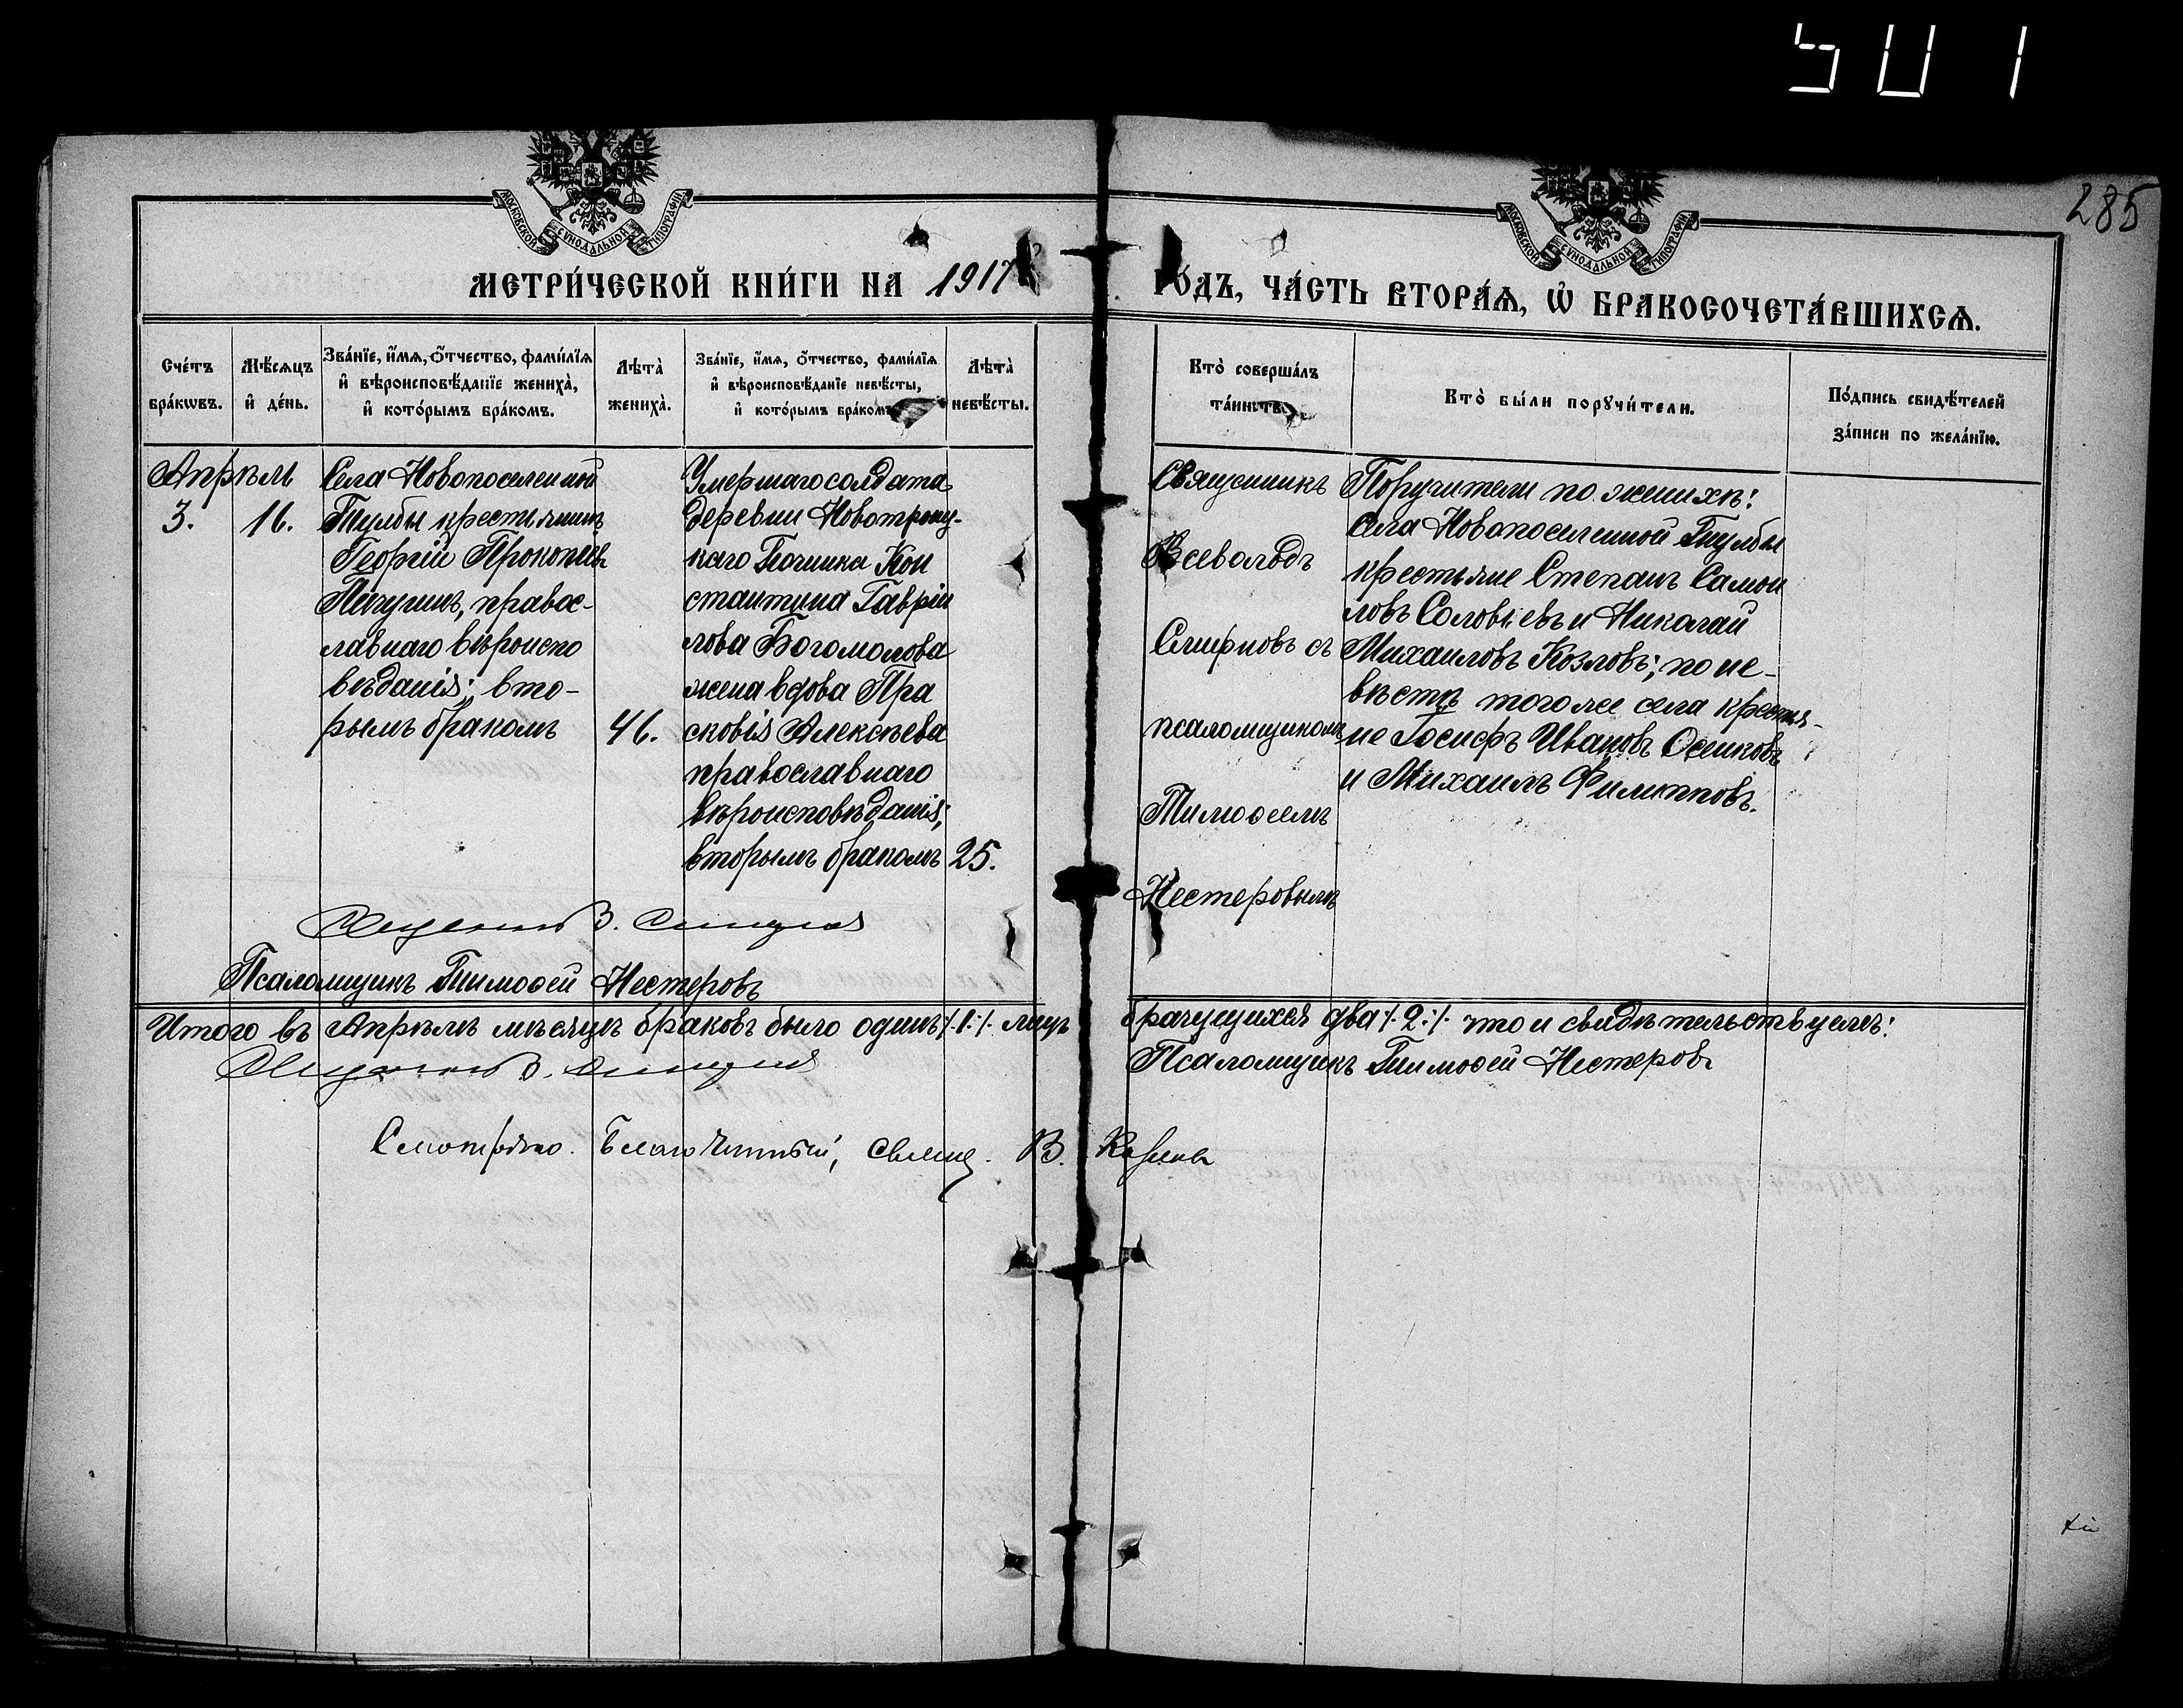 501
285
МОСКОВСКОЙ СѴНОДАЛЬНОЙ ТИПОГРАФІИ
МОСКОВСКОЙ СѴНОДАЛЬНОЙ ТИПОГРАФІИ
МЕТРИ́ЧЕСКОЙ КНИ́ГИ НА 1917
ГО́ДЪ, ЧА́СТЬ ВТОРА́Я, Ѡ БРАКОСОЧЕТА́ВШИХСЯ.
Сче́тъ бра́кѡвъ.
Мѣ́сяцъ и де́нь.
Зва́нїе, и́мя, ѻ́тчество, фами́лїя
и вѣроисповѣ́данїе жениха̀,
и кото́рымъ бра́комъ.
Лѣта̀ жениха̀.
Зва́нїе, и́мя, ѻ́тчество, фами́лїя
и вѣроисповѣ́данїе невѣ́сты,
и кото́рымъ бра́комъ
Лѣта̀ невѣ́сты.
Кто̀ соверша́лъ
та́инство
Кто̀ бы́ли порꙋчи́тели.
По́дпись свидѣ́телей
за́писи по жела́нїю.
Апрѣль
3.
16.
Села Новопоселенной
Тулбы крестьянинъ
Георгій Прокопіевъ
Пичугинъ, правос-
лавнаго вѣроиспо
вѣданія; вто-
рымъ бракомъ
46.
Умершаго солдата
деревни Новотроиц-
каго Починка Кон
стантина Гаврiи
лова Богомолова
жена вдова Пра
сковія Алексѣева
православнаго
вѣроисповѣданія;
вторымъ бракомъ
25.
Священникъ
Всеволодъ
Смирновъ съ
псаломщикомъ
Тимоѳеемъ
Нестеровымъ
Поручители по женихѣ:
Села Новопоселенной Тулбы
крестьяне Степанъ Самои
ловъ Соловьевъ и Николай
Михаиловъ Козловъ; по не-
вѣстѣ того же села крестья-
не Іосифъ Ивановъ Осенковъ
и Михаилъ Филипповъ.
В.
Псаломщикъ Тимоѳей Нестеровъ
Итого въ Апрѣлѣ мѣсяцѣ браковъ было одинъ ⁒1⁒ лицъ
брачущихся два ⁒2⁒ что и свидѣтельствуемъ:
В.
Псаломщикъ Тимоѳей Нестеровъ
Смотрѣно. Благочинный, свящ. В.